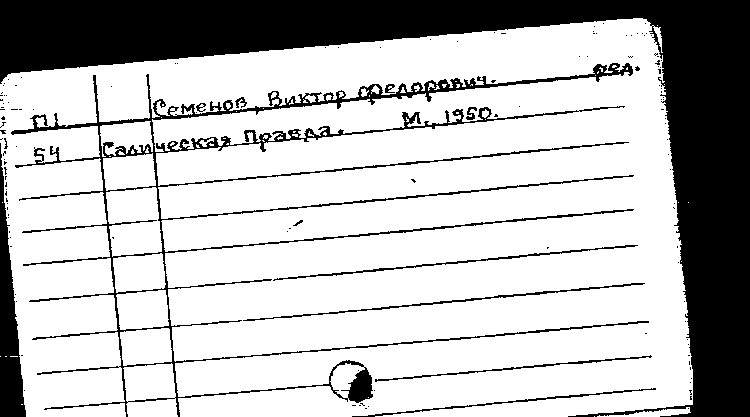 П1 Семенов, Виктор Федорович. ред.
54 Салическая Правда. М., 1950.